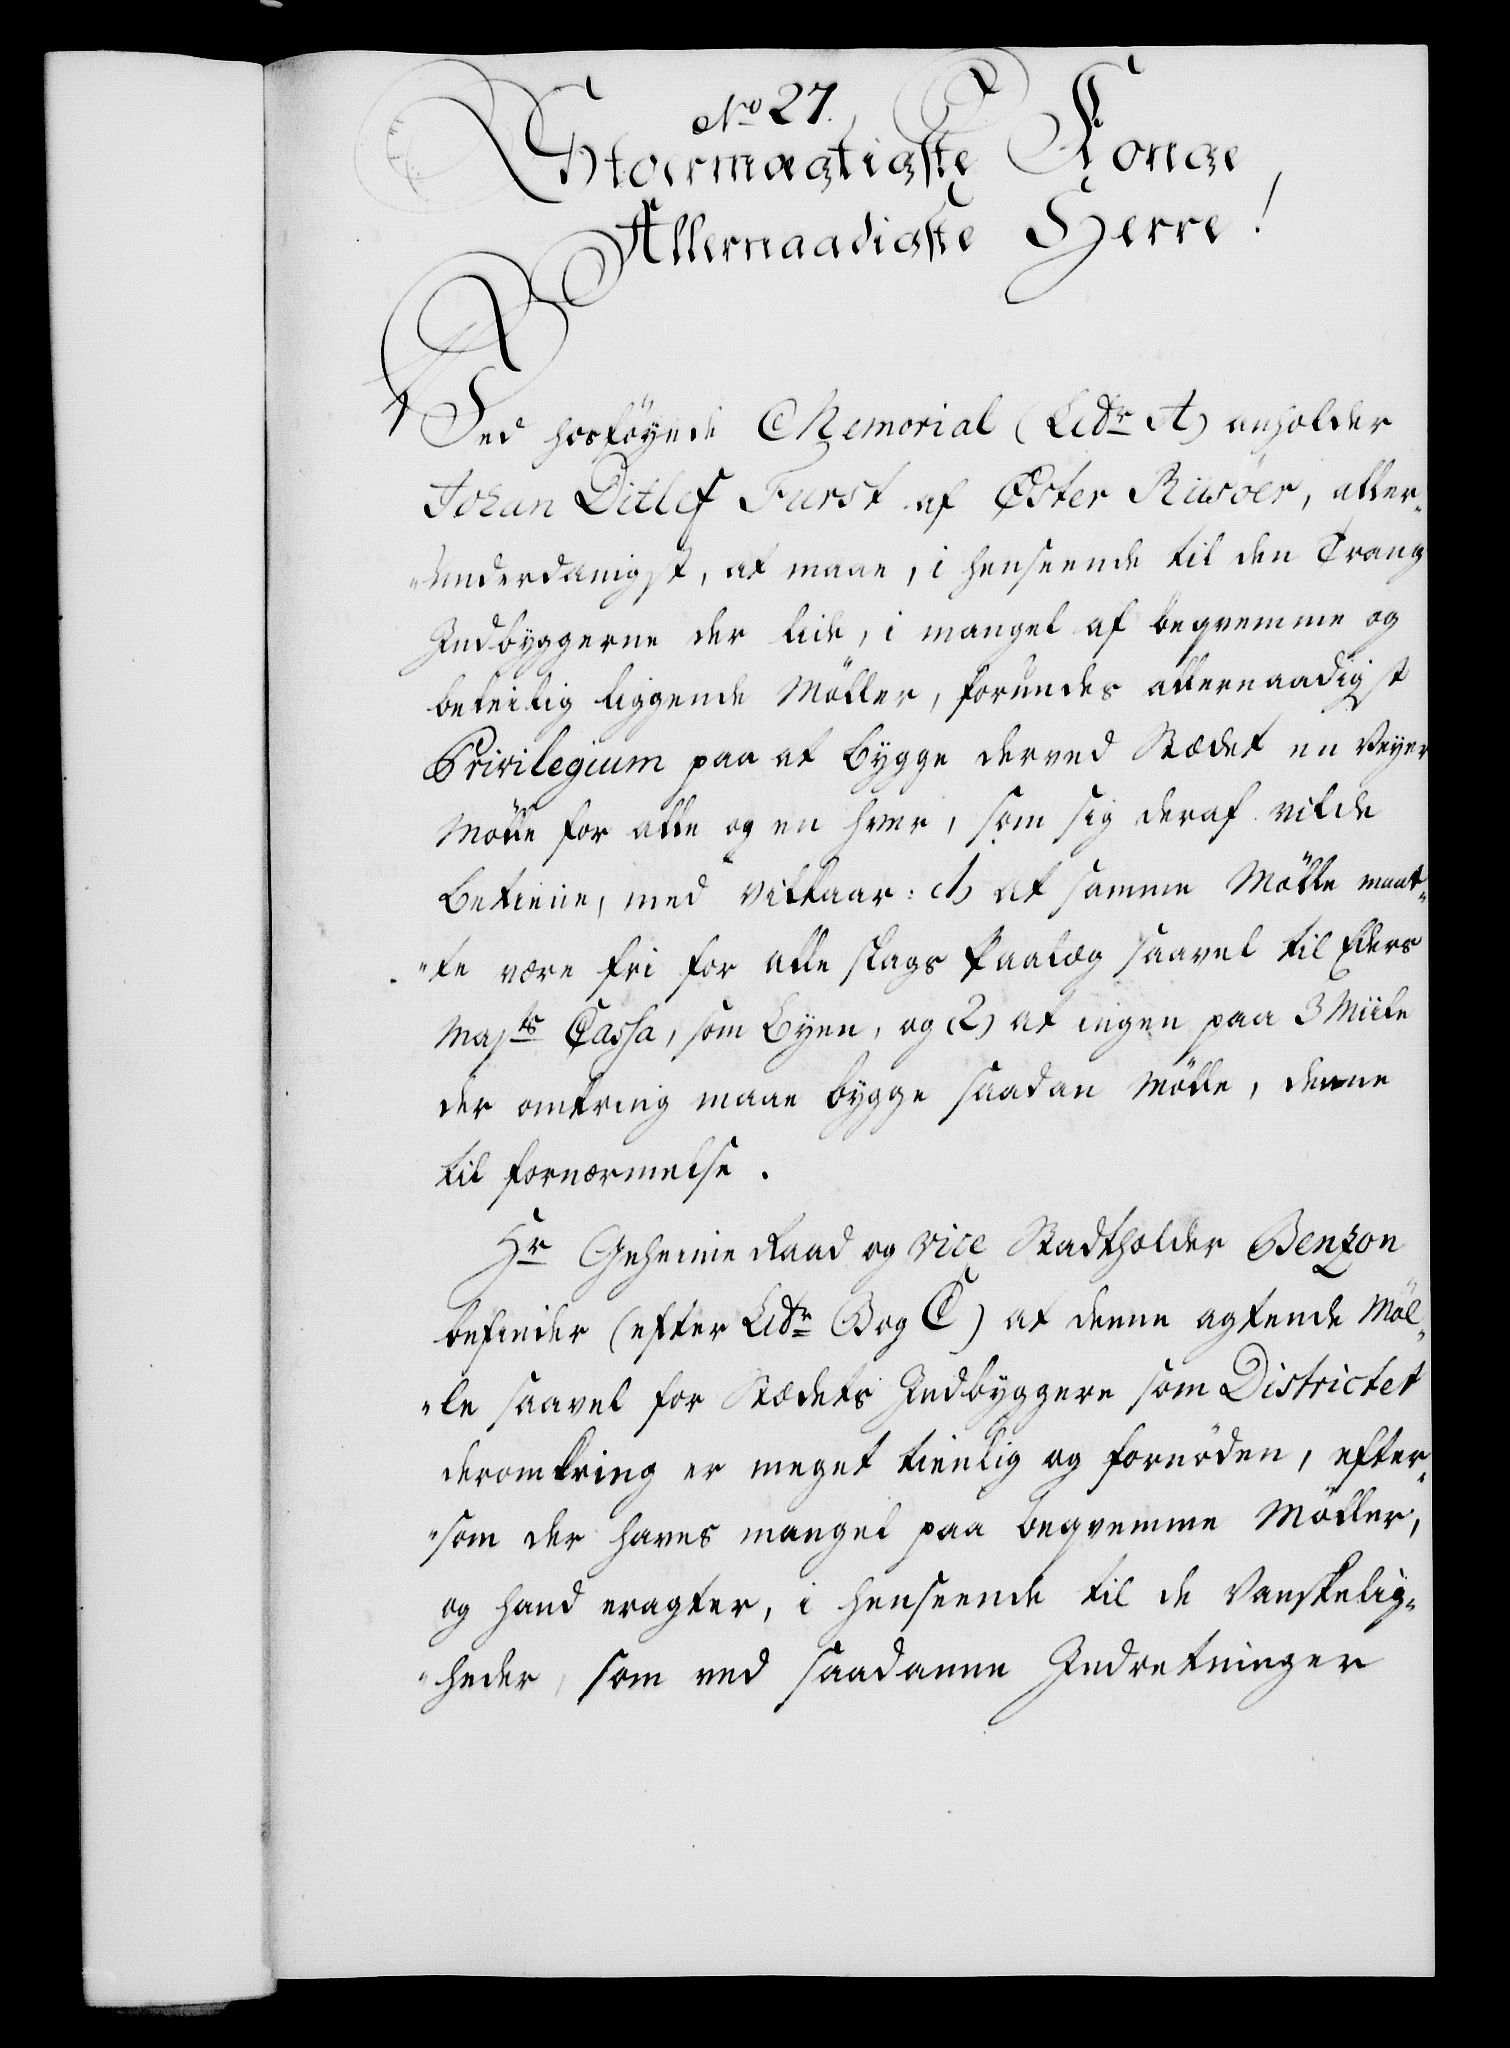 No 27.
Stoermægtigste Konge
Allernaadigste Herre!
Ved hosföyede Memorial (Lidr A) anholder
Johan Ditlef Furst af Öster Riisöer, aller-
underdanigst, at maae, i henseende til den Trang
Indbyggerne der lide, i mangel af beqvemme og
beleilig liggende Möller, forundes allernaadigst
Privilegium paa at bygge derved Stædet en Veyer
Mölle for alle og en hver, som sig deraf vilde
betiene, med Vilkaar: 1) at samme Mölle maat-
te være fri for alle slags Paalæg saavel til Eders
Majts Cassa, som Byen, og 2) at ingen paa 3 Miile
der omkring maae bygge saadan Mölle, denne
til fornærmelse.
Hr Geheime Raad og Vice Stadtholder Benzon
befinder (efter Lidr B og C) at denne agtende Möl-
le saavel for Stædets Indbyggere som Districtet
deromkring er meget tienlig og fornöden, efter-
som der haves mangel paa beqvemme Möller,
og hand eragter, i henseende til de Vanskelig-
heder, som ved saadanne Indretninger